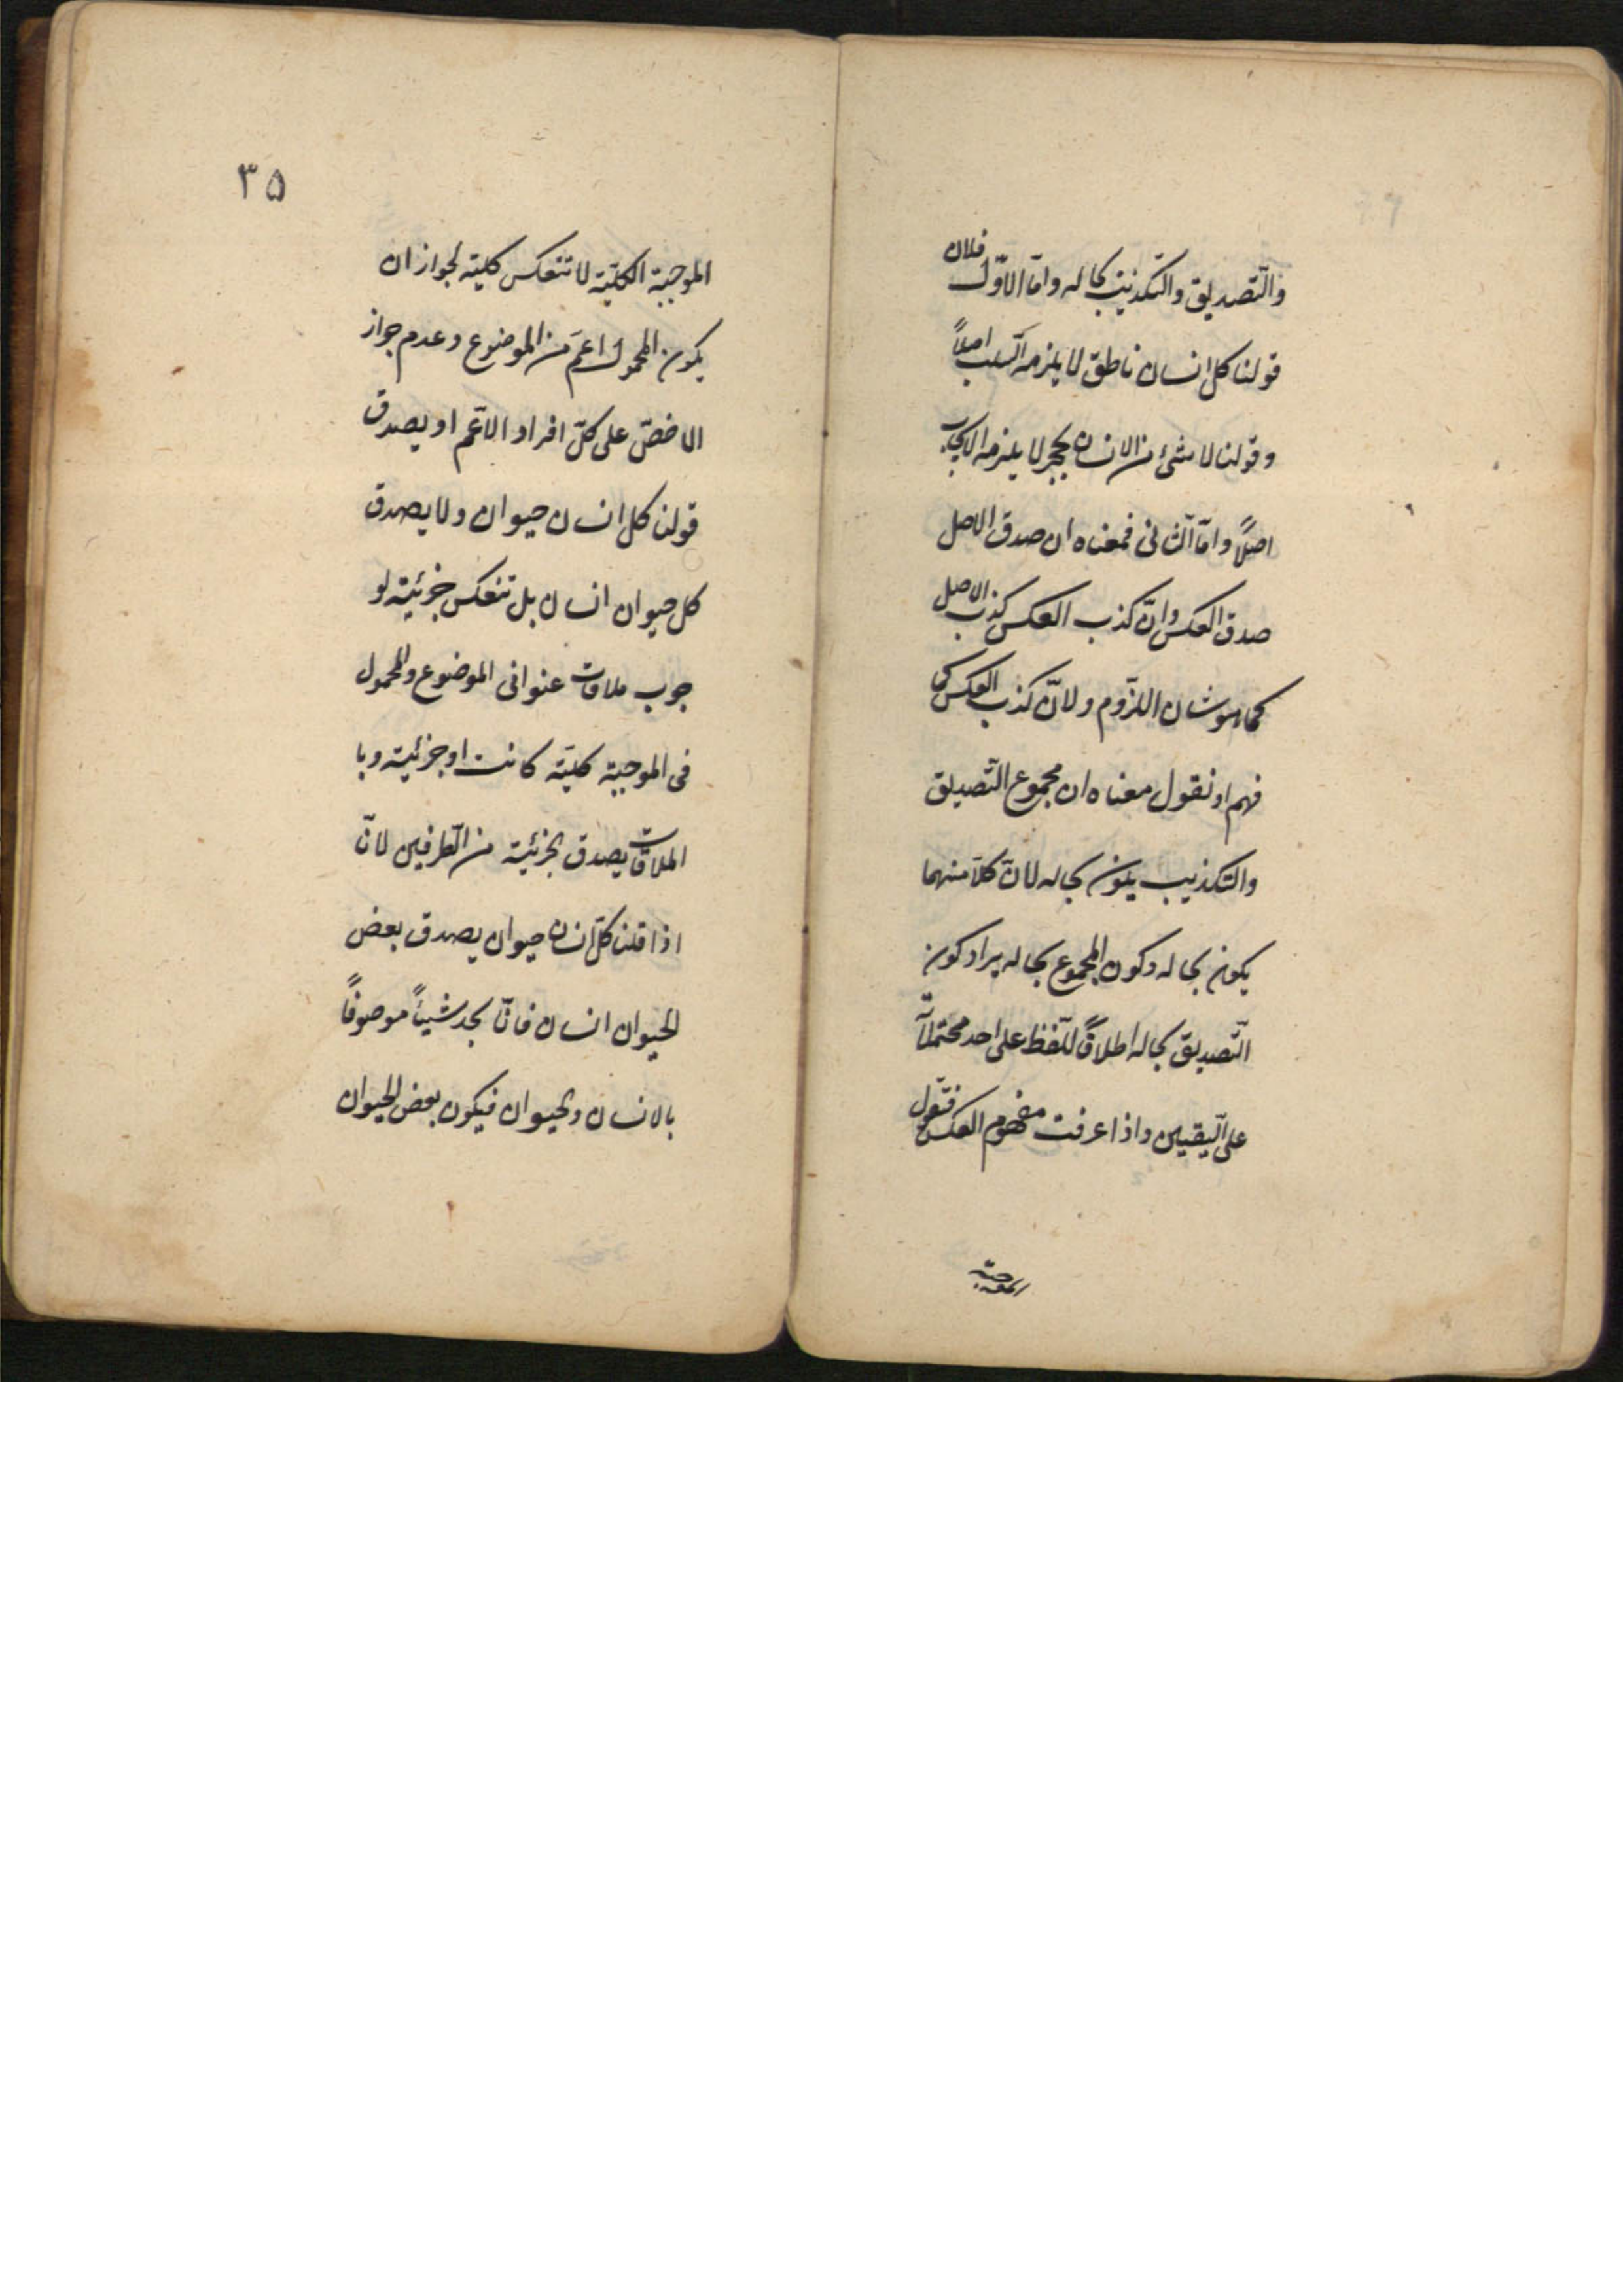 والتّصديق والتّكذيب بحاله وامّا الاوّل فلان
قولنا كل انسان ناطق لا يلزمه السّلب اصلاً
وقولنا لا شئ من الانسان بحجر لا يلزمه الايجاب
اصلاً وامّا الثانى فمعناه ان صدق الاصل
صدق العكس وانّ كذب العكس كذب الاصل
كما هو شان اللّزوم ولانّ كذب العكس كى
فهم او نقول معناه ان مجموع التّصديق
والتكذيب يكون بحاله لانّ كلاّ منهما
يكون بحاله وكون المجموع بحاله يراد كون
التّصديق بحاله اطلاقاً للّفظ على احد محتملاته
على اليقين واذا عرفت مفهوم العكس فنقول
الموجبة
٣۵
الموجبة الكليّة لا تنعكس كلية لجواز ان
يكون المحمول اعمّ من الموضوع وعدم جواز
الاخصّ على كلّ افراد الاعّم او يصدق
قولنا كل انسان حيوان ولا يصدق
كل حيوان انسان بل تنعكس جزئية لو
جوب ملاقات عنوانى الموضوع والمحمول
فى الموجبة كليّة كانت او جزئية وبا
الملاقات يصدق الجزئية من الطّرفين لانّ
اذا قلنا كلّ انسان حيوان يصدق بعض
الحيوان انسان فانّا نجد شيئاً موصوفاً
بالانسان والحيوان فيكون بعض الحيوان